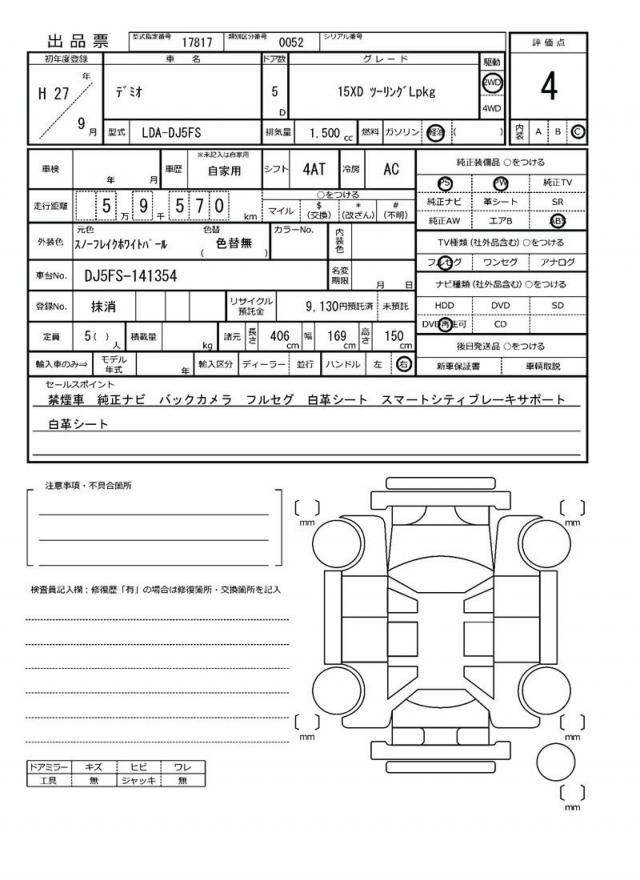 出品票 型式指定番号 17817 類別区分番号 0052 シリアル番号
評価点
初年度登録 車名 ドア数 グレード 駆動
H 27 年 ﾃﾞﾐｵ 5 D 15XD ﾂｰﾘﾝｸﾞLpkg 2WD 4
4WD
9 月 型式 LDA-DJ5FS 排気量 1,500 cc 燃料 ガソリン 軽油 ( ) 内装 A B C
車検 年 月 車歴 ※未記入は自家用 自家用 シフト 4AT 冷房 AC
純正装備品 ○をつける
PS PW 純正TV
走行距離 5 万 9 千 5 7 0 km ○をつける
マイル $(交換) *(改ざん) #(不明)
純正ナビ 革シート SR
純正AW エアB ABS
外装色 元色 ｽﾉｰﾌﾚｲｸﾎﾜｲﾄﾊﾟｰﾙ 色替 ( 色替無 ) カラーNo. 内装色
TV種類 (社外品含む) ○をつける
フルセグ ワンセグ アナログ
車台No. DJ5FS-141354 名変期限 月 日
ナビ種類 (社外品含む) ○をつける
登録No. 抹消 リサイクル預託金 9,130円預託済 未預託
HDD DVD SD
DVD再生可 CD
定員 5( ) 人 積載量 kg 諸元 長さ 406 cm 幅 169 cm 高さ 150 cm
後日発送品 ○をつける
輸入車のみ⇒ モデル年式 年 輸入区分 ディーラー 並行 ハンドル 左 右
新車保証書 車輌取説
セールスポイント
禁煙車 純正ナビ バックカメラ フルセグ 白革シート スマートシティブレーキサポート
白革シート
注意事項・不具合箇所
mm mm
検査員記入欄：修復歴「有」の場合は修復箇所・交換箇所を記入
mm mm
ドアミラー キズ ヒビ ワレ
工具 無 ジャッキ 無
mm